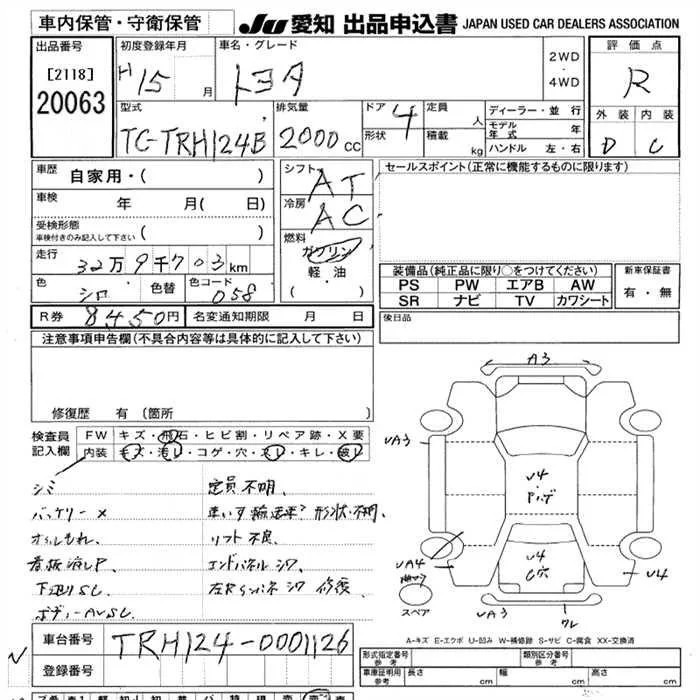 車内保管・守衛保管
JU 愛知 出品申込書 JAPAN USED CAR DEALERS ASSOCIATION
出品番号 初度登録年月 車名・グレード 2WD・4WD 評価点
[2118]
20063
H15 月
トヨタ
R
型式 排気量 ドア 4 定員 人 ディーラー・並行 外装 内装
TC-TRH124B 2000cc 形状 積載 kg モデル年式 年
ハンドル 左・右
D C
車歴 自家用・( )
シフト AT
セールスポイント(正常に機能するものに限ります)
車検 年 月( 日)
冷房 AC
受検形態
車検付きのみ記入して下さい
燃料 ガソリン
軽油
・( )
走行 32万9千703km
色 シロ 色替 色コード 058
装備品(純正品に限り○をつけてください) 新車保証書
PS PW エアB AW
SR ナビ TV カワシート
有・無
R券 8450円 名変通知期限 月 日
後日品
注意事項申告欄(不具合内容等は具体的に記入して下さい)
修復歴 有(箇所
検査員記入欄
FW キズ・飛石・ヒビ割・リペア跡・X要
内装 キズ・汚レ・コゲ・穴・スレ・キレ・破レ
シミ
バッテリー×
オイルもれ、
看板消しP、
下廻りSC
ボディーAVSC
定員不明、
車いす輸送車?形状不明、
リフト不良
エンドパネルシワ
修復
A3
VA3
V4
V4
C穴
VA4
V4
スペア
VA3
ワレ
A-キズ E-エクボ U-凹み W-補修跡 S-サビ C-腐食 XX-交換済
車台番号 TRH124-0001126
登録番号
形式指定番号
参考
類別区分番号
参考
車庫証明用
参考
長さ cm 幅 cm 高さ cm